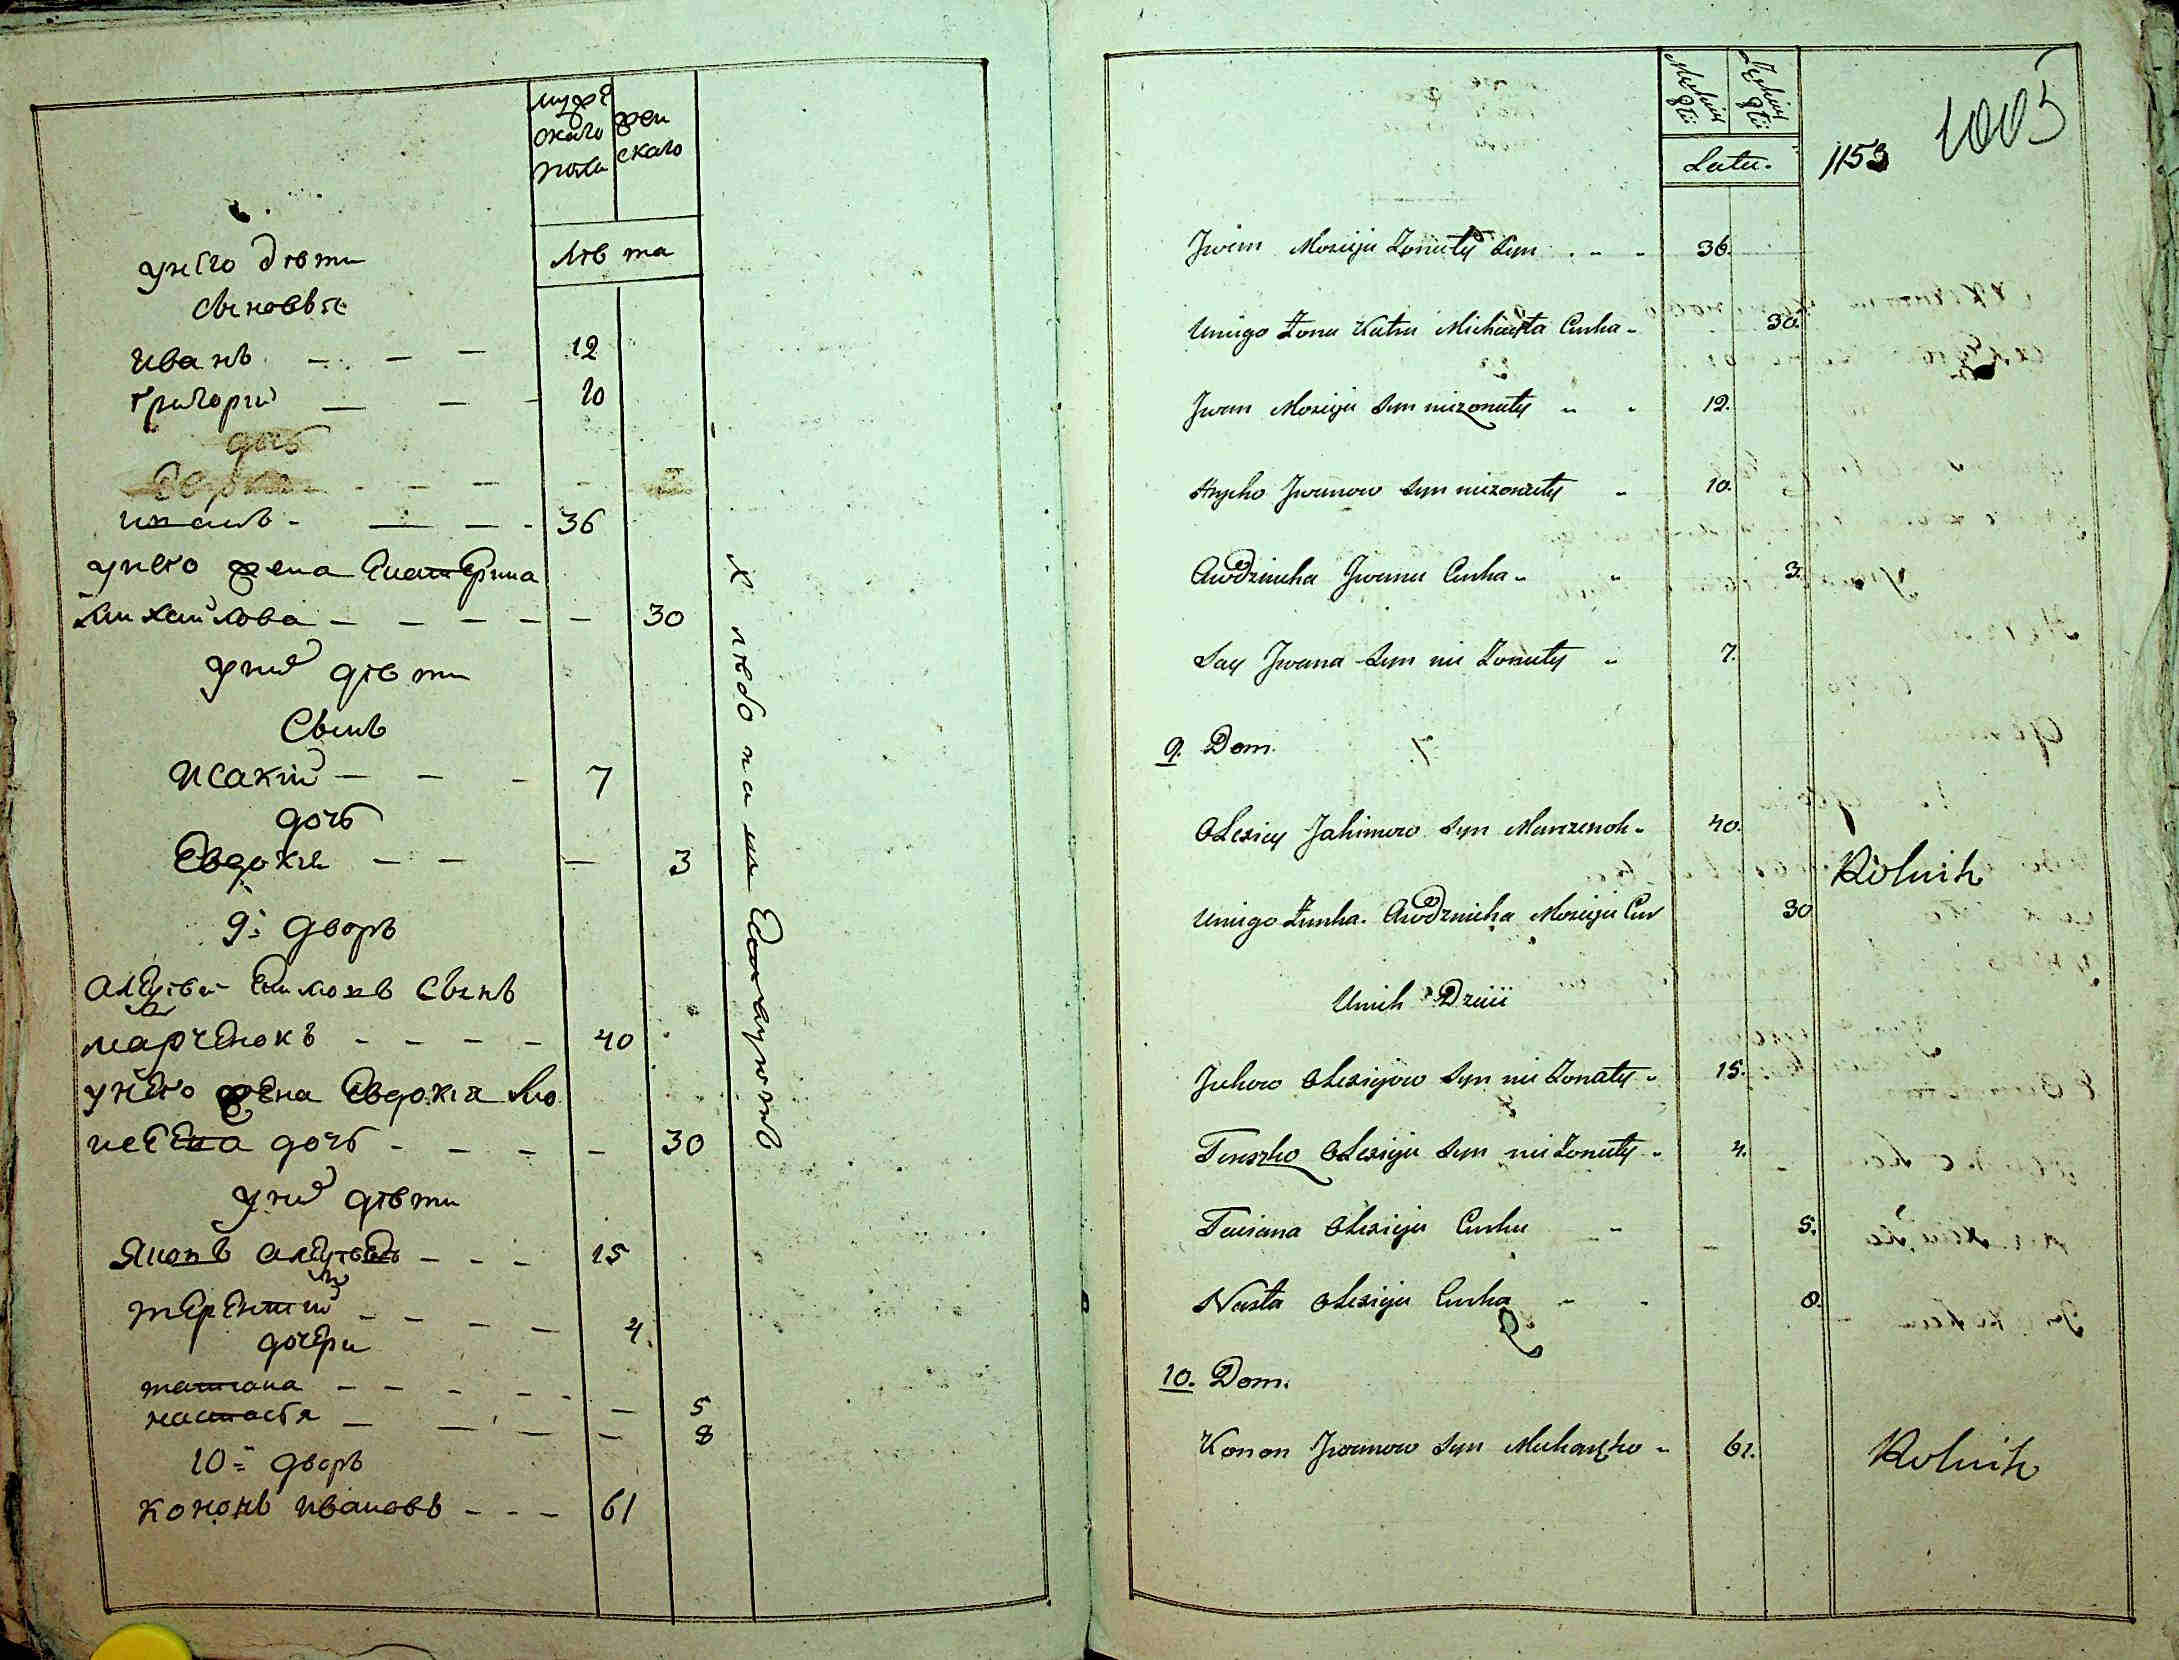 мужескаго пола
женскаго
лѣта
у него дѣти
сыновья
иванъ - - - 12
григорий - - - 10
дочь
- - - -
иванъ - - - 36
у него жена Екатерина
михайлова - - - - - 30
у них дѣти
Сынъ
исакий - - - 7
дочь
Евдокия - - - 3
9й дворъ
алексѣй Екимовъ сынъ
марченокъ - - - - 40
у него жена Евдокия мо
исеева дочь - - - - 30
у них дѣти
Яковъ алексѣевъ - - - 15
терентий - - - - 4
дочери
татиана - - - - - 5
настасья - - - - - 8
10й дворъ
кононъ ивановъ - - - 61
хлѣбопашествуютъ
Męskiej płci
Żeńskiej płci
Lata.
1153
1005
Iwan Mosieja Żonaty Syn . - - 36.
Uniego Żona Katra Michayła Curka - 30.
Iwan Mosieja Syn nieżonaty " " 12.
Hrycko Iwanow Syn nieżonaty " 10.
Awdziucha Iwana Curka " " 3.
Say Iwana Syn nie Żonaty " 7.
9. Dom.
Olexiey Jakimow Syn Marczenok - 40.
Rolnik
Uniego Żenka Awdziucha Mosieja Cur 30
Unich Dzieii
Jakow Olexiejow Syn nie Żonaty " 15.
Tereszko Olexieja Syn nie Żonaty " 4.
Taciana Olexieja Curka " - 5.
Nasta Olexieja Curka " - 8.
10. Dom.
Konon Iwanow Syn - 61.
Rolnik